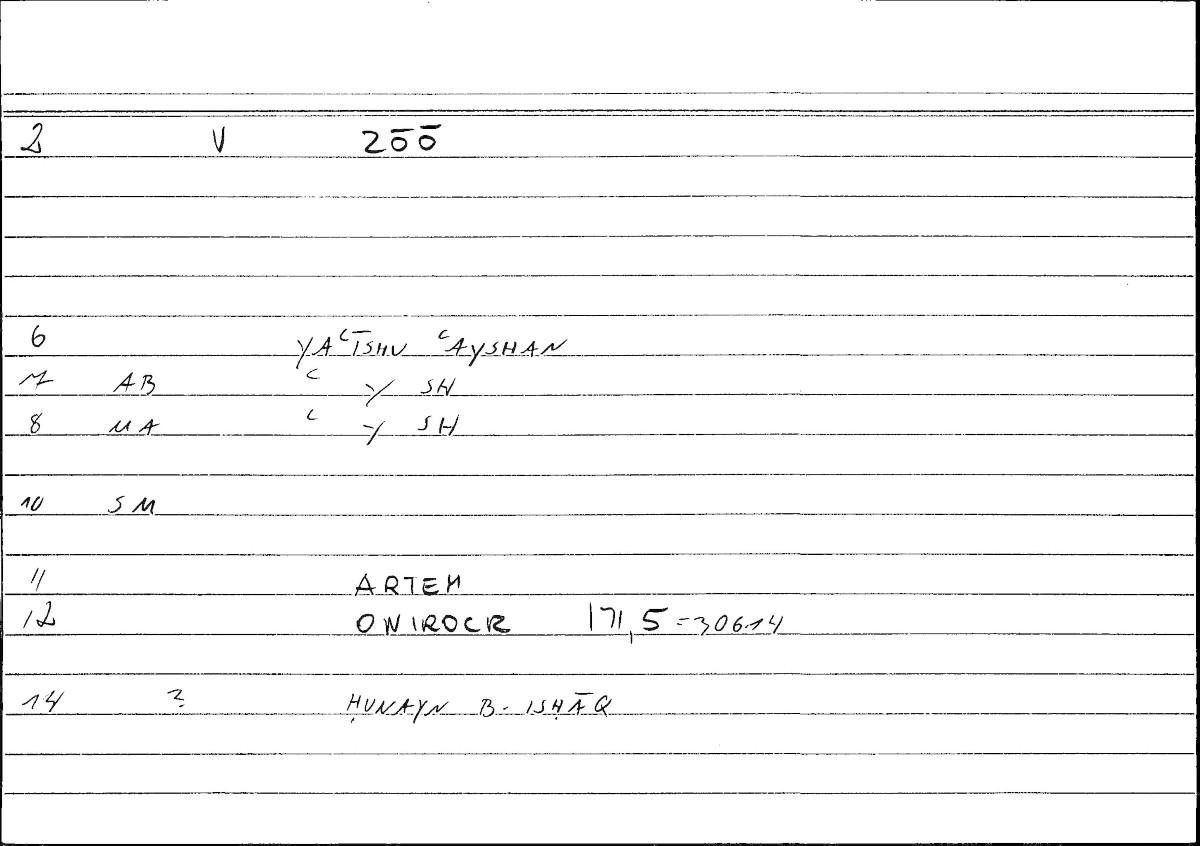 2 V 2ō ō
6 YAʿĪSHU ʿAYSHAN
7 AB ʿ Y SH
8 MA ʿ Y SH
10 SM
11 ARTEM
12 ONIROCR 171,5 = 306.14
14 ? ḤUNAYN B. ISḤĀQ